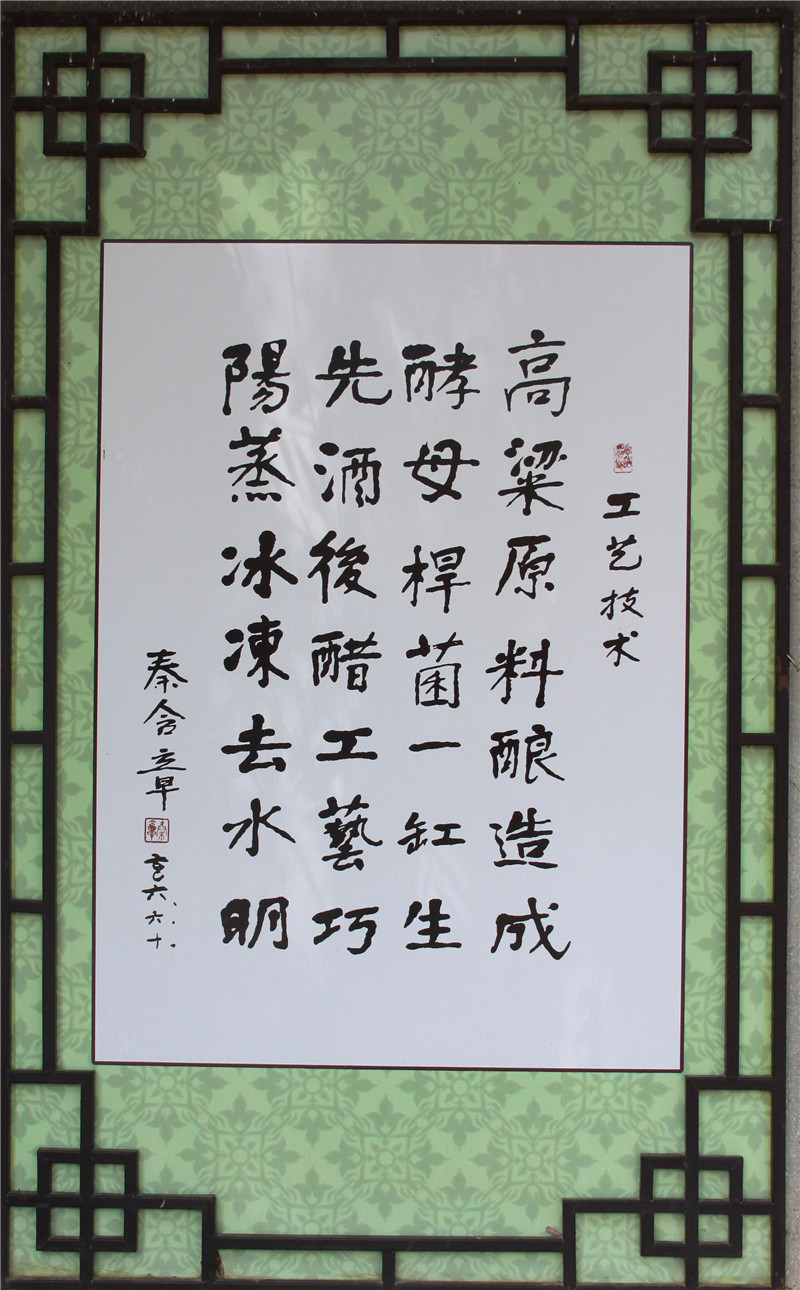 工艺技术
高粱原料酿造成
酵母桿菌一缸生
先酒後醋工藝巧
陽蒸冰凍去水明
秦含章
六.六.十.